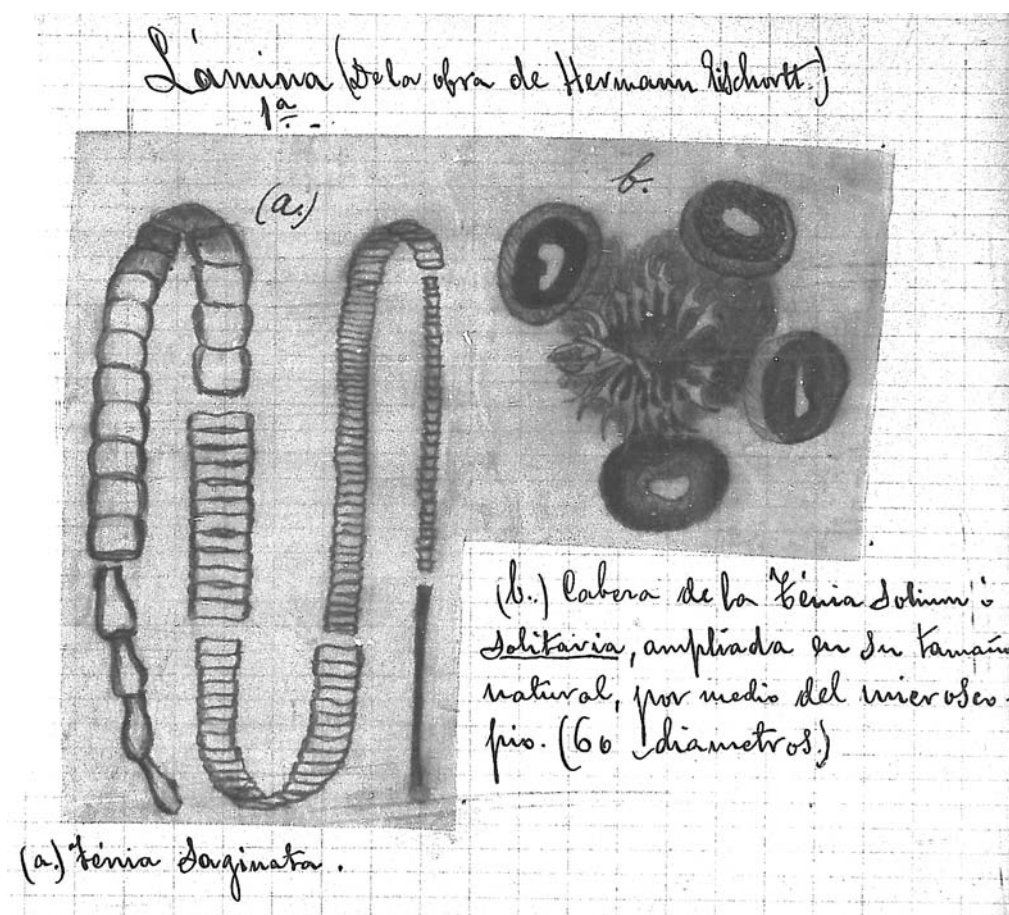 Lámina (De la obra de Hermann
1ª.-
(a.)
b.
(b.) Cabeza de la Ténia Solium ó
Solitaria, ampliada en su tamaño
natural, por medio del microsco-
pio. (60 diametros.)
(a.) Ténia Saginata.